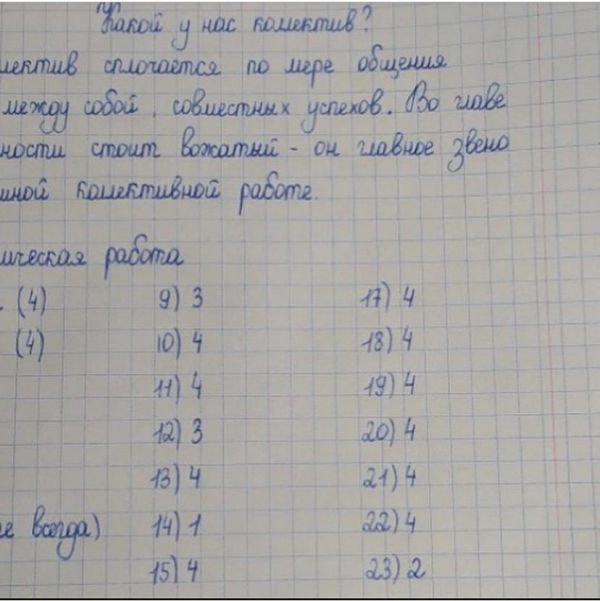 Какой у нас колектив?
лектив сплочается по мере общения
между собой, совместных успехов. Во главе
ности стоит вожатый - он главное звено
шной колективной работе.
ическая работа
(4) 9) 3 17) 4
(4) 10) 4 18) 4
11) 4 19) 4
12) 3 20) 4
13) 4 21) 4
е всегда) 14) 1 22) 4
15) 4 23) 2